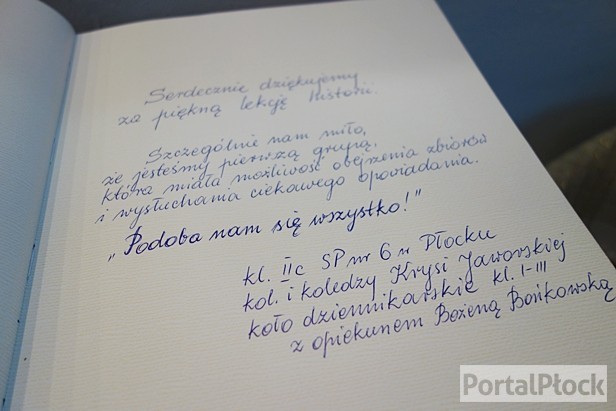 Serdecznie dziękujemy
za piękną lekcję historii.
Szczególnie nam miło,
że jesteśmy pierwszą grupą,
która miała możliwość obejrzenia zbiorów
i wysłuchania ciekawego opowiadania.
„Podoba nam się wszystko!"
kl. IIc SP nr 6 w Płocku
kol. i koledzy Krysi Jaworskiej
koło dziennikarskie kl. I-III
z opiekunem Bożeną Bońkowską
PortalPłock